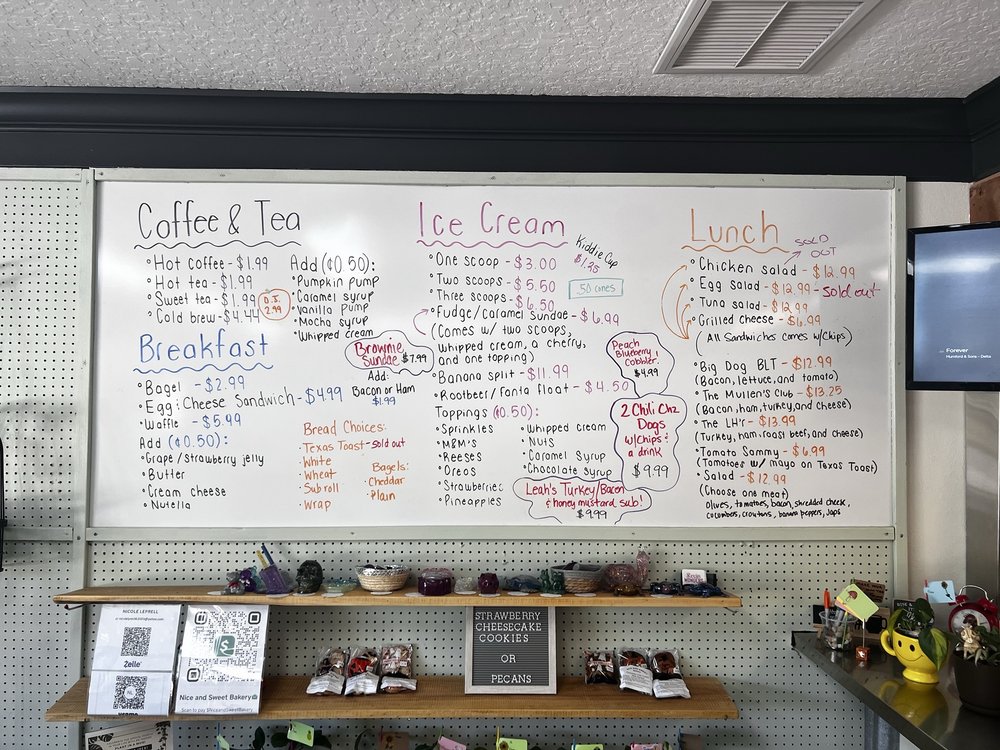 Coffee & Tea
°Hot coffee - $1.99
°Hot tea - $1.99
°Sweet tea - $1.99
°Cold brew - $4.44
O.J.
2.99
Add (¢0.50):
•Pumpkin pump
•Caramel syrup
•Vanilla pump
•Mocha syrup
•Whipped cream
Breakfast
•Bagel - $2.99
•Egg & Cheese Sandwich - $4.99
•Waffle - $5.99
Add (¢0.50):
•Grape/Strawberry jelly
•Butter
•Cream cheese
•Nutella
Add:
Bacon or Ham
$1.99
Bread Choices:
•Texas Toast - sold out
•White
•Wheat
•Sub roll
•Wrap
Bagels:
•Cheddar
•Plain
Brownie
Sundae $7.99
Ice Cream
Kiddie Cup
$1.25
°One scoop - $3.00
°Two scoops - $5.50
°Three scoops - $6.50
.50 cones
°Fudge/Caramel Sundae - $6.99
(Comes w/ two scoops,
whipped cream, a cherry,
and one topping)
°Banana split - $11.99
°Rootbeer/Fanta float - $4.50
Toppings (¢0.50):
•Sprinkles
•M&M's
•Reeses
•Oreos
•Strawberries
•Pineapples
•Whipped cream
•Nuts
•Caramel syrup
•Chocolate syrup
Peach
Blueberry
Cobbler
$4.99
2 Chili Chz
Dogs
w/chips &
a drink
$9.99
Leah's Turkey/Bacon
& honey mustard sub!
$9.99
Lunch
SOLD
OUT
°Chicken salad - $12.99
°Egg salad - $12.99 - sold out
°Tuna salad - $12.99
°Grilled cheese - $6.99
(All Sandwiches comes w/chips)
°Big Dog BLT - $12.99
(Bacon, lettuce, and tomato)
°The Mullen's Club - $13.25
(Bacon, ham, turkey, and cheese)
°The LH'r - $13.99
(Turkey, ham, roast beef, and cheese)
°Tomato Sammy - $6.99
(Tomatoes w/ mayo on Texas Toast)
°Salad - $12.99
(Choose one meat)
Olives, tomatoes, bacon, shredded cheek,
cucumbers, croutons, banana peppers, japs
Forever
Mumford & Sons - Delta
NICOLE LEFRELL
Zelle
venmo
Nice and Sweet Bakery
Scan to pay $NiceandSweetBakery
STRAWBERRY
CHEESECAKE
COOKIES
OR
PECANS